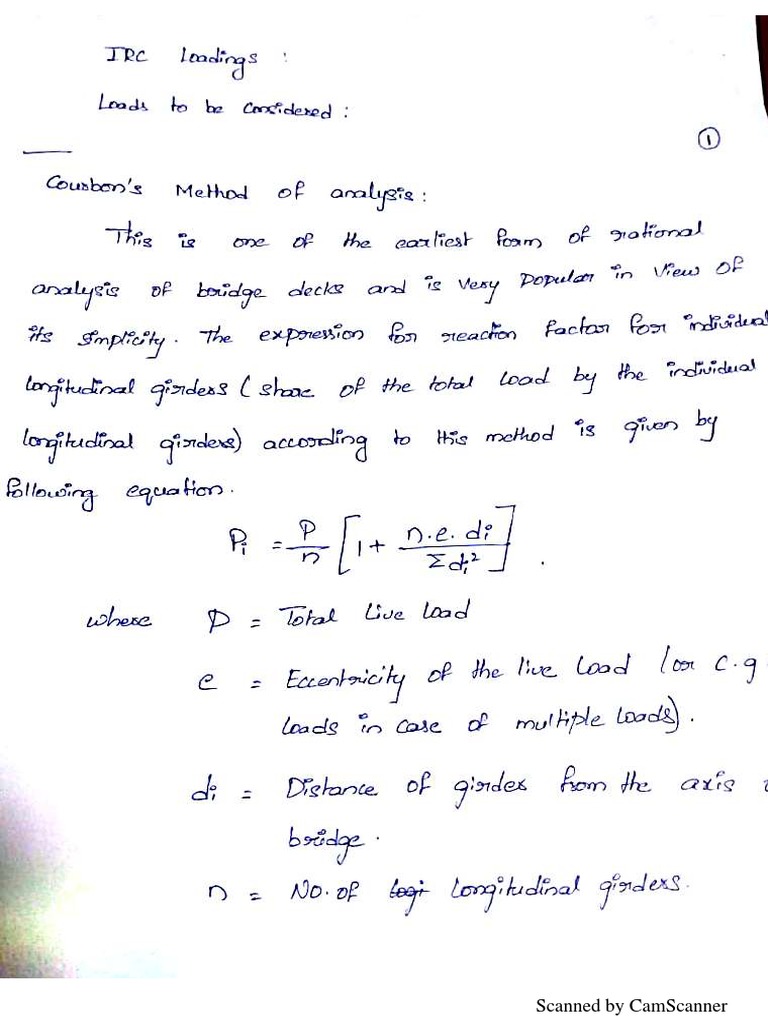 IRC Loadings :
Loads to be Considered :
1
Courbon's Method of analysis :
This is one of the earliest form of rational
analysis of bridge decks and is very popular in view of
its simplicity. The expression for reaction factor for individual
longitudinal girders ( share of the total load by the individual
longitudinal girders) according to this method is given by
following equation.
Pi = P/n [ 1 + n.e. di / Σdi² ] .
where P = Total Live Load
e = Eccentricity of the live load (or c.g
loads in case of multiple loads).
di = Distance of girder from the axis
bridge.
n = No. of longitudinal girders.
Scanned by CamScanner